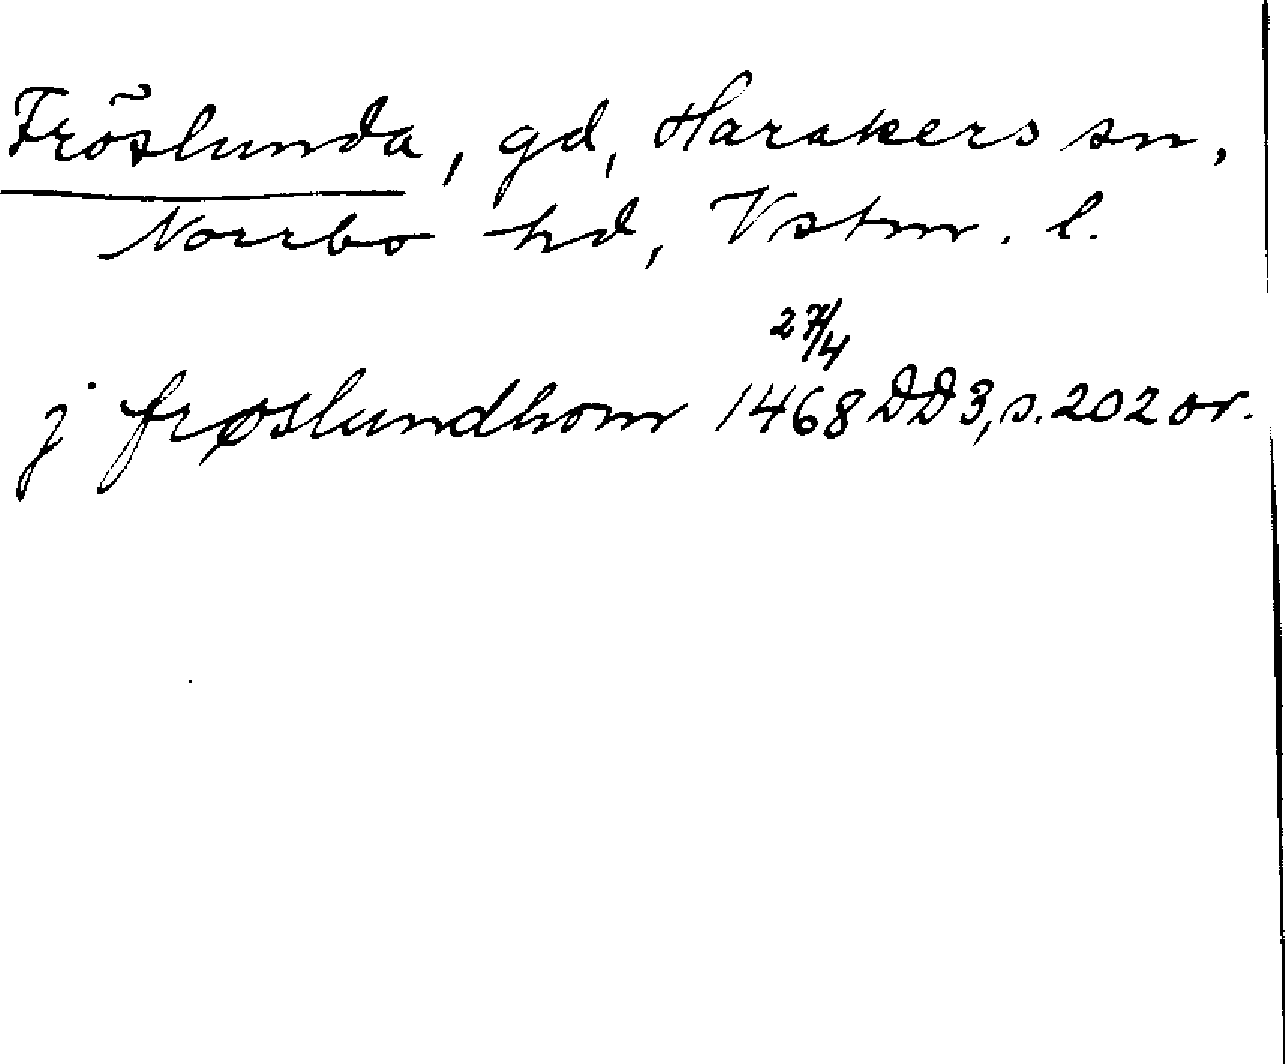 Fröslunda, gd, Harakers sn,
Norrbo hd, Vstm. l.
27/4
j frøslundhom 1468 DD3, s. 202 or.